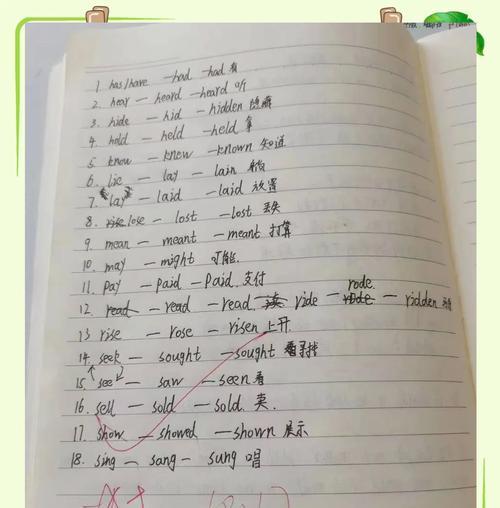 1 has/have — had — had 有
2. hear — heard — heard 听
3. hide — hid — hidden 隐藏
4 hold — held — held 拿
5 know — knew — known 知道
6. lie — lay — lain
7. lay — laid — laid 放置
8. rise lose — lost — lost 丢失
9 mean — meant — meant 打算
10 may — might 可能.
11 pay — paid — Paid. 支付
12 read — read — read 读 ride — rode. rode — ridden
13 rise — rose — risen 上升
14. seek — sought — sought 看寻找
15 see — saw — seen 看
16. sell — sold — sold. 卖.
17. show — showed — shown 展示
18. sing — sang — sung 唱